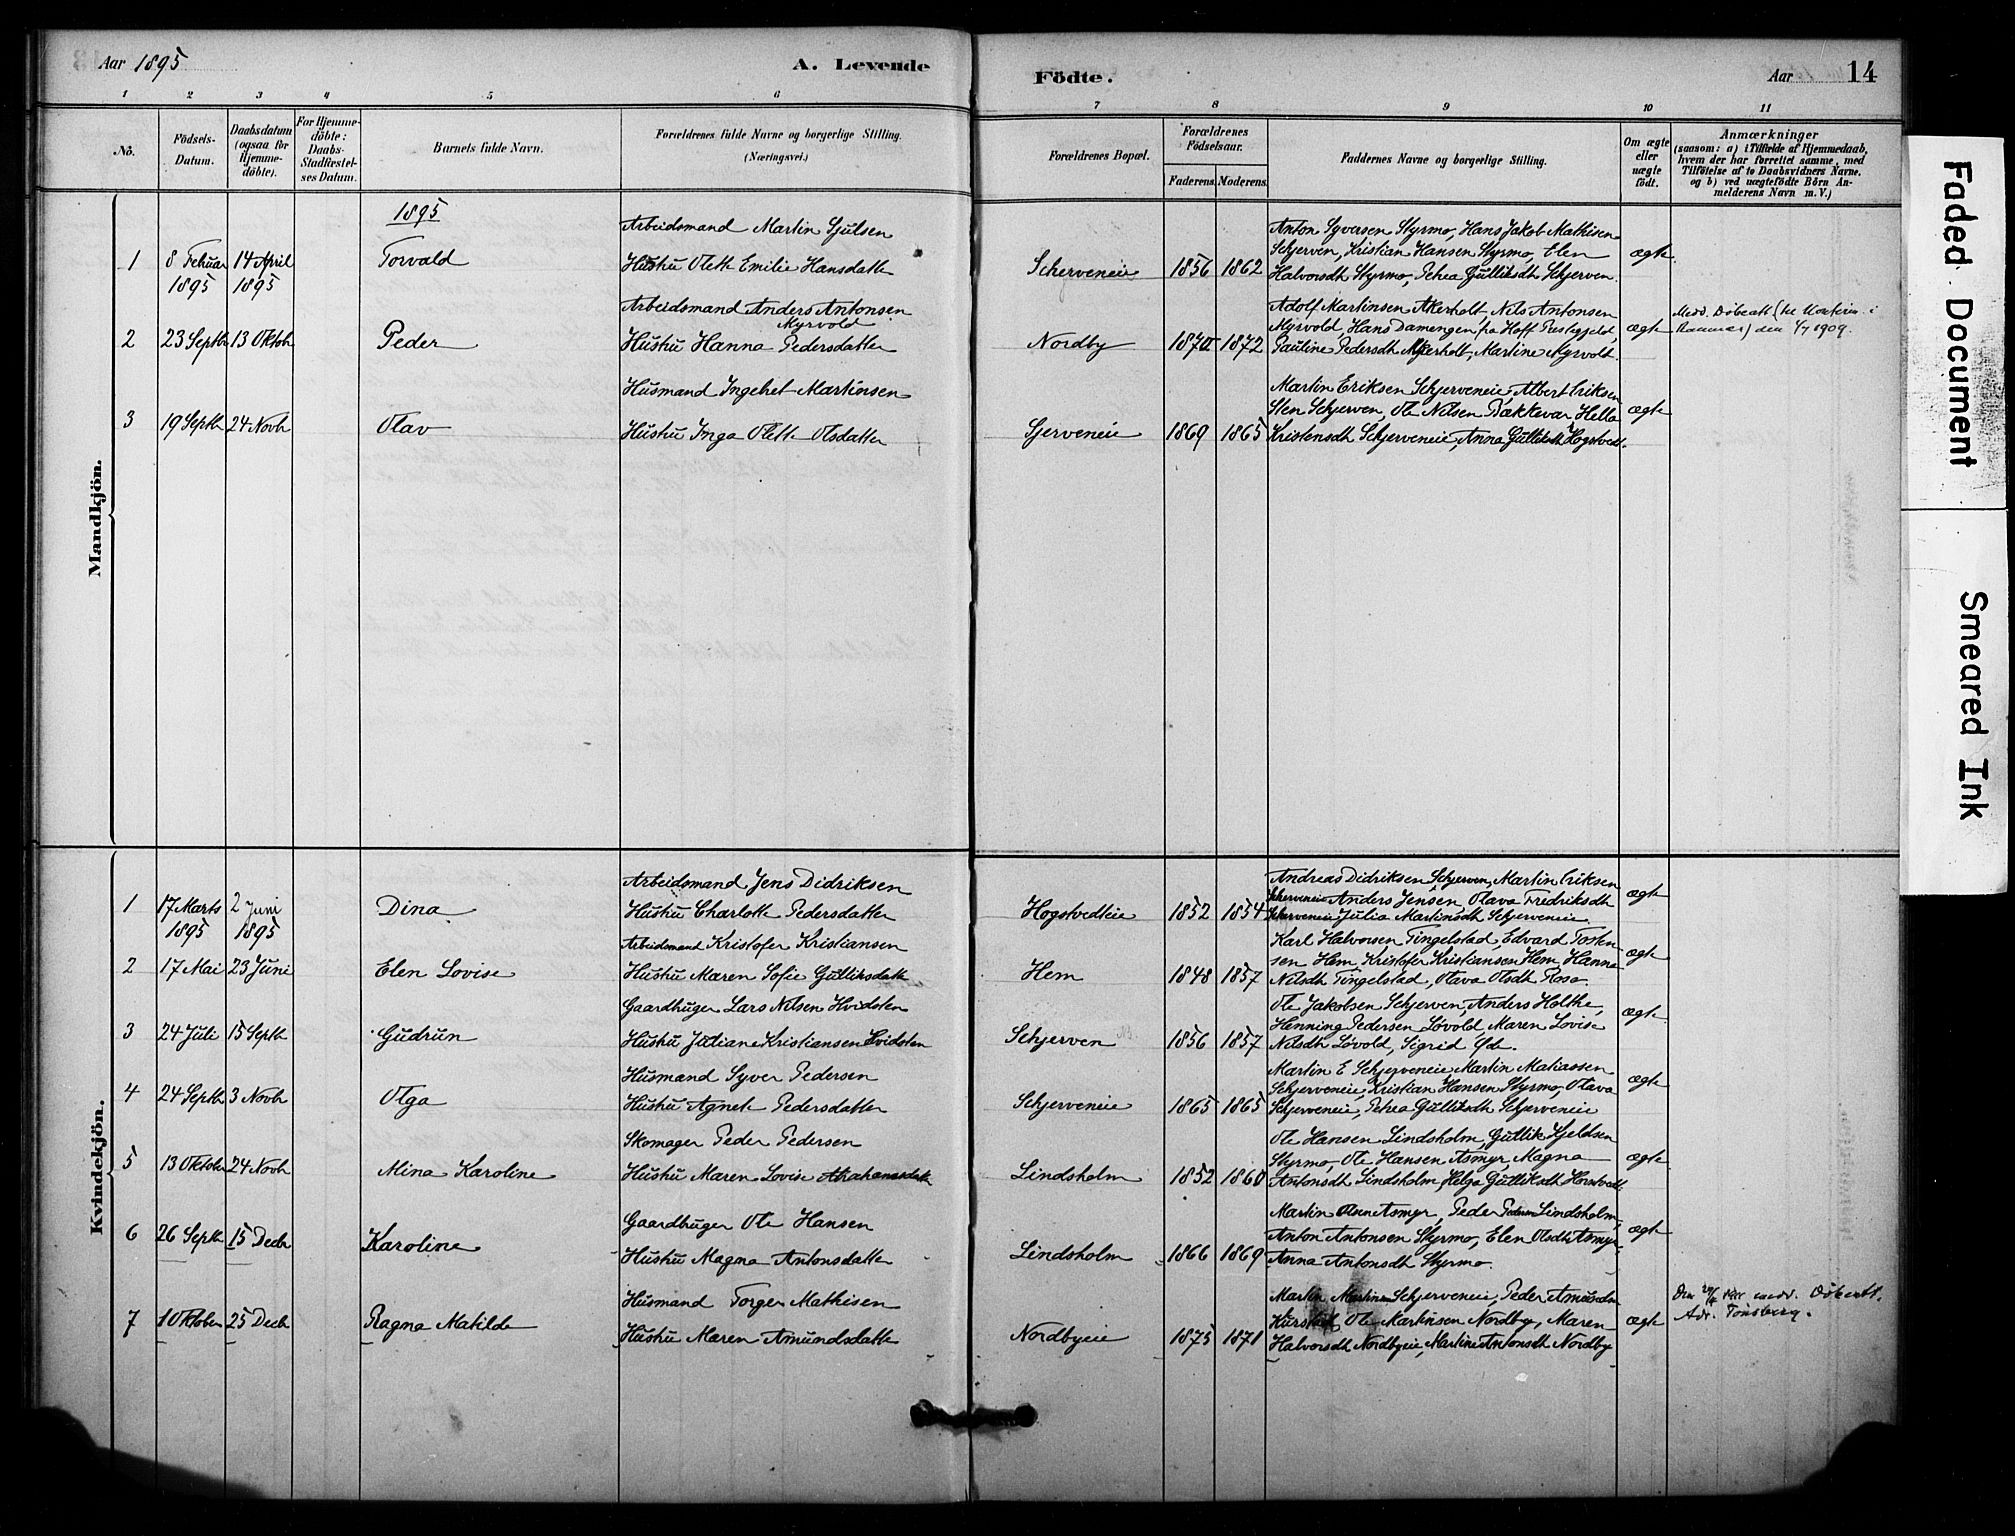 Aar 1895
A. Levende
Födte.
Aar
14
1 2 3 4 5 6 7 8 9 10 11
No.
Födsels-Datum.
Daabsdatum (ogsaa for Hjemmedöbte).
For Hjemmedöbte: Daabs-Stadfæstelses Datum.
Barnets fulde Navn.
Forældrenes fulde Navne og borgerlige Stilling.
(Næringsvei.)
Forældrenes Bopæl.
Forældrenes Födselsaar.
Faderens. Moderens.
Faddernes Navne og borgerlige Stilling.
Om ægte eller uægte födt.
Anmærkninger
(saasom: a) i Tilfælde af Hjemmedaab, hvem der har forrettet samme, med Tilföielse af to Daabsvidners Navne. og b) ved uægtefödte Börn Anmelderens Navn m. V.)
Mandkjön.
1895
1 8 Februar 1895 14 April 1895 Torvald
Arbeidsmand Martin Sjulsen
Hustru Olette Emilie Hansdatter
Scherveneie 1856 1862
Anton Syversen Styrmo, Hans Jakob Mathisen
Schjerven, Kristian Hansen Styrmo, Elen
Halvorsdt Styrmo, Petrea Gulliksdt Schjerven.
ægte.
2 23 Septb 13 Oktob Peder
Arbeidsmand Anders Antonsen
Myrvold
Hustru Hanna Pedersdatter
Nordby 1870 1872
Adolf Martinsen Akerholt, Nils Antonsen
Myrvold, Hans Damengen fra Hoff Prestegjeld,
Pauline Pedersdt Akerholt, Martine Myrvolt.
ægte
Medd. Döbeatt. (til Konfirm. i
Ramnes) den 1/7 1909.
3 19 Septb 24 Novb Olav
Husmand Ingebret Martinsen
Hustru Inga Olette Olsdatter
Sjerveneie 1869 1865
Martin Eriksen Schjerveneie, Albert Eriksen
Sten Schjerven, Ole Nilsen Bækkevar, Hella
Kristensdt Schjerveneie, Anna Gulliksdt Hogstvedt.
ægte
Kvindekjön.
1 17 Marts 1895 2 Juni 1895 Dina
Arbeidsmand Jens Didriksen
Hustru Charlotte Pedersdatter
Hogstvedteie 1852 1854
Andreas Didriksen Schjerven, Martin Eriksen
Scherveneie Anders Jensen, Olava Fredriksdt
Scherveneie, Julia Martinsdt Schjerveneie
ægte
2 17 Mai 23 Juni Elen Lovise
Arbeidsmand Kristofer Kristiansen
Hustru Maren Sofie Gulliksdatter
Hem 1848 1857
Karl Halvorsen Tingelstad, Edvard Tosten-
sen Hem, Kristofer Kristiansen Hem, Hanna
Nilsdt Tingelstad, Olava Olsdt Rosa.
ægte
3 24 Juli 15 Septb Gudrun
Gaardbruger Lars Nilsen Hvidsten
Hustru Juliane Kristiansen Hvidsten
Schjerven 1856 1857
Ole Jakobsen Schjerven, Anders Holthe,
Henning Pedersen Løvold, Maren Lovise
Nilsdt Løvold, Sigrid
ægte.
4 24 Septb 3 Novb Olga
Husmand Syver Pedersen
Hustru Agnete Pedersdatter
Schjerveneie 1865 1865
Martin E Schjerveneie, Martin Matiassen
Schjerveneie, Kristian Hansen Styrmo, Olava
Schjerveneie, Petrea Gulliksdt Schjerveneie
ægte
5 13 Oktober 24 Novb Mina Karoline
Skomager Peder Pedersen
Hustru Maren Lovise Abrahamsdatter
Lindsholm 1852 1860
Ole Hansen Lindsholm, Gullik Kjeldsen
Styrmo, Ole Hansen Asmyr, Magna
Antonsdt Lindsholm, Helga Gulliksdt Horstvedt.
ægte
6 26 Septb 15 Decb Karoline
Gaardbruger Ole Hansen
Hustru Magna Antonsdatter
Lindsholm 1866 1869
Martin Olsen Asmyr, Peder Pedersen Lindsholm,
Anton Antonsen Styrmo, Elen Olsdt Asmyr,
Anna Antonsdt Styrmo.
ægte
7 1 Oktober 25 Decb Ragna Matilde
Husmand Torger Mathisen
Hustru Maren Amundsdatter
Nordbyeie 1875 1871
Martin Martinsen Schjerveneie, Peder Amundsen
Ole Martinsen Nordby, Maren
Halvorsdt Nordbyeie, Martine Antonsdt Nordby
ægte
Den medd. Döbeatt.
Adr. Tönsberg.
Faded Document
Smeared Ink